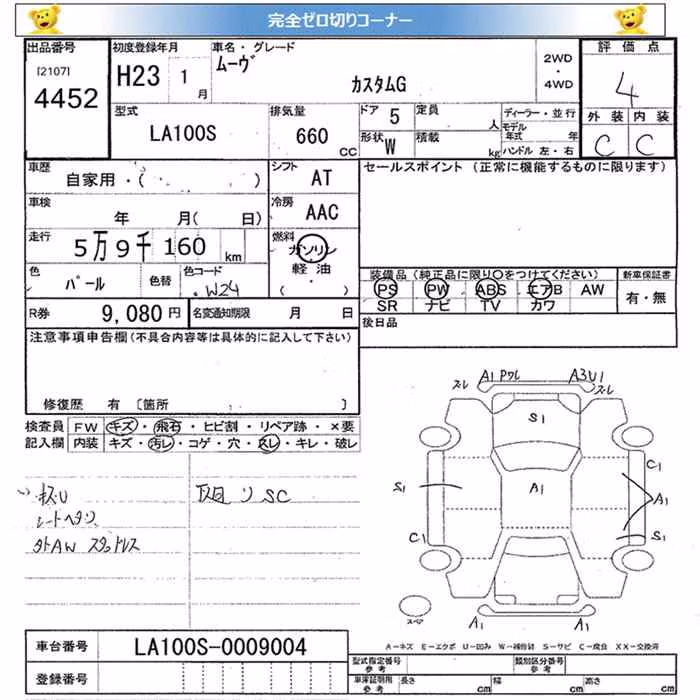 完全ゼロ切りコーナー
出品番号
[2107]
4452
初度登録年月
H23 1
月
車名・グレード
ムーヴ
カスタムG
2WD
・
4WD
評価点
4
外装 内装
C C
型式
LA100S
排気量
660
CC
ドア 5
定員
人
形状 W
積載
kg
ディーラー・並行
モデル
年式 年
ハンドル 左・右
車歴
自家用・( )
シフト
AT
セールスポイント (正常に機能するものに限ります)
車検
年 月( 日)
冷房
AAC
走行
5万9千160 km
燃料
ガソリン
軽油
( )
色
パール
色替
色コード
W24
装備品(純正品に限り○をつけてください)
PS PW ABS エアB AW
SR ナビ TV カワ
新車保証書
有・無
R券
9,080円
名変通知期限 月 日
後日品
注意事項申告欄(不具合内容等は具体的に記入して下さい)
修復歴 有 〔箇所 〕
検査員
記入欄
FW キズ・飛石・ヒビ割・リペア跡・×要
内装 キズ・汚レ・コゲ・穴・スレ・キレ・破レ
キズU
シートヘタリ
タトAW スタッドレス
下回リ SC
スレ A1 Pワレ A3U1 スレ
S1
S1
A1
C1
A1
C1
S1
スペア
A1 A1
車台番号
LA100S-0009004
登録番号
A-キズ E-エクボ U-凹み W-補修跡 S-サビ C-腐食 XX-交換済
型式指定番号
参考
類別区分番号
参考
車庫証明用
参考
長さ cm
幅 cm
高さ cm